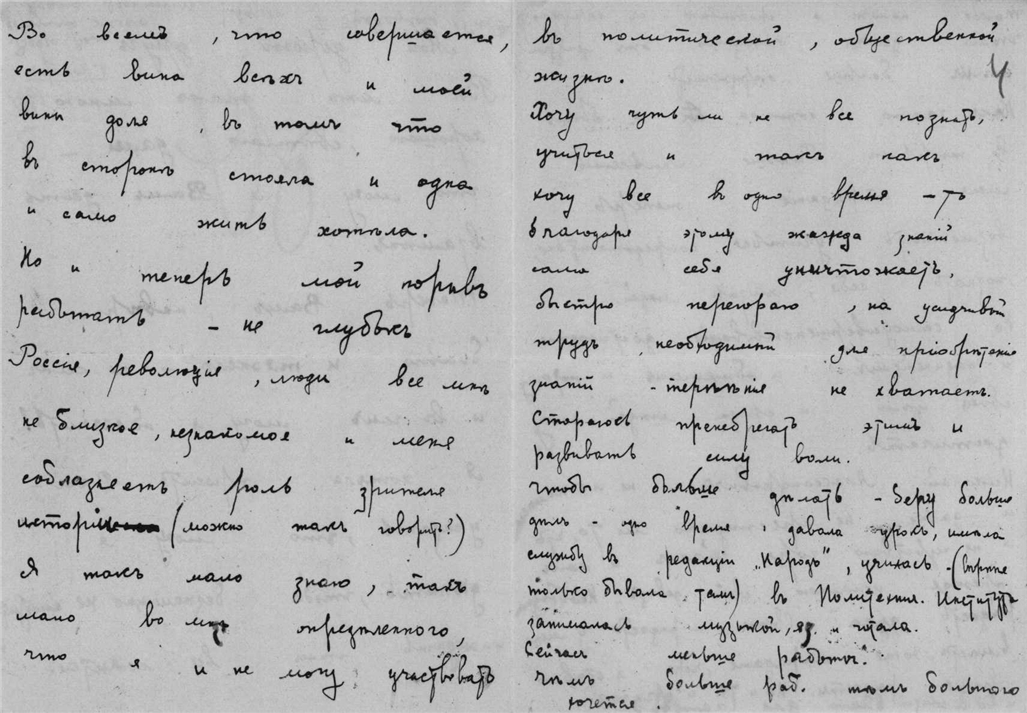 Во всемъ, что совершается,
есть вина всѣхъ и моей
вины доля, въ томъ что
въ сторонѣ стояла и одна
и само жить хотѣла.
Но и теперь мой порывъ
работать – не глубокъ
Россія, революція, люди все мнѣ
не близкое, незнакомое и меня
соблазняетъ роль зрителя
исторіи (можно такъ говорить?)
Я такъ мало знаю, такъ
мало во мнѣ опредѣленнаго,
что я и не могу участвовать
въ политической, общественной
жизни.
4
Хочу чуть ли не все познать,
учиться и такъ какъ
хочу все в одно время – то
благодаря этому жажда знаній
сама себя уничтожаетъ,
быстро перегораю, на усидчивый
трудъ, необходимый для пріобрѣтенія
знаній - терпѣнія не хватаетъ.
Стараюсь пренебрегать этимъ и
развивать силу воли.
Чтобы больше дѣлать – беру больше
дѣлъ - одно время давала урокъ, имѣла
службу в редакціи „Народъ", училась - (вѣрнѣе
только бывала тамъ) въ Политехн. Институтѣ
занималась музыкой, яз. и читала.
Сейчасъ меньше работы.
чѣмъ больше раб. тѣмъ большаго
хочется.